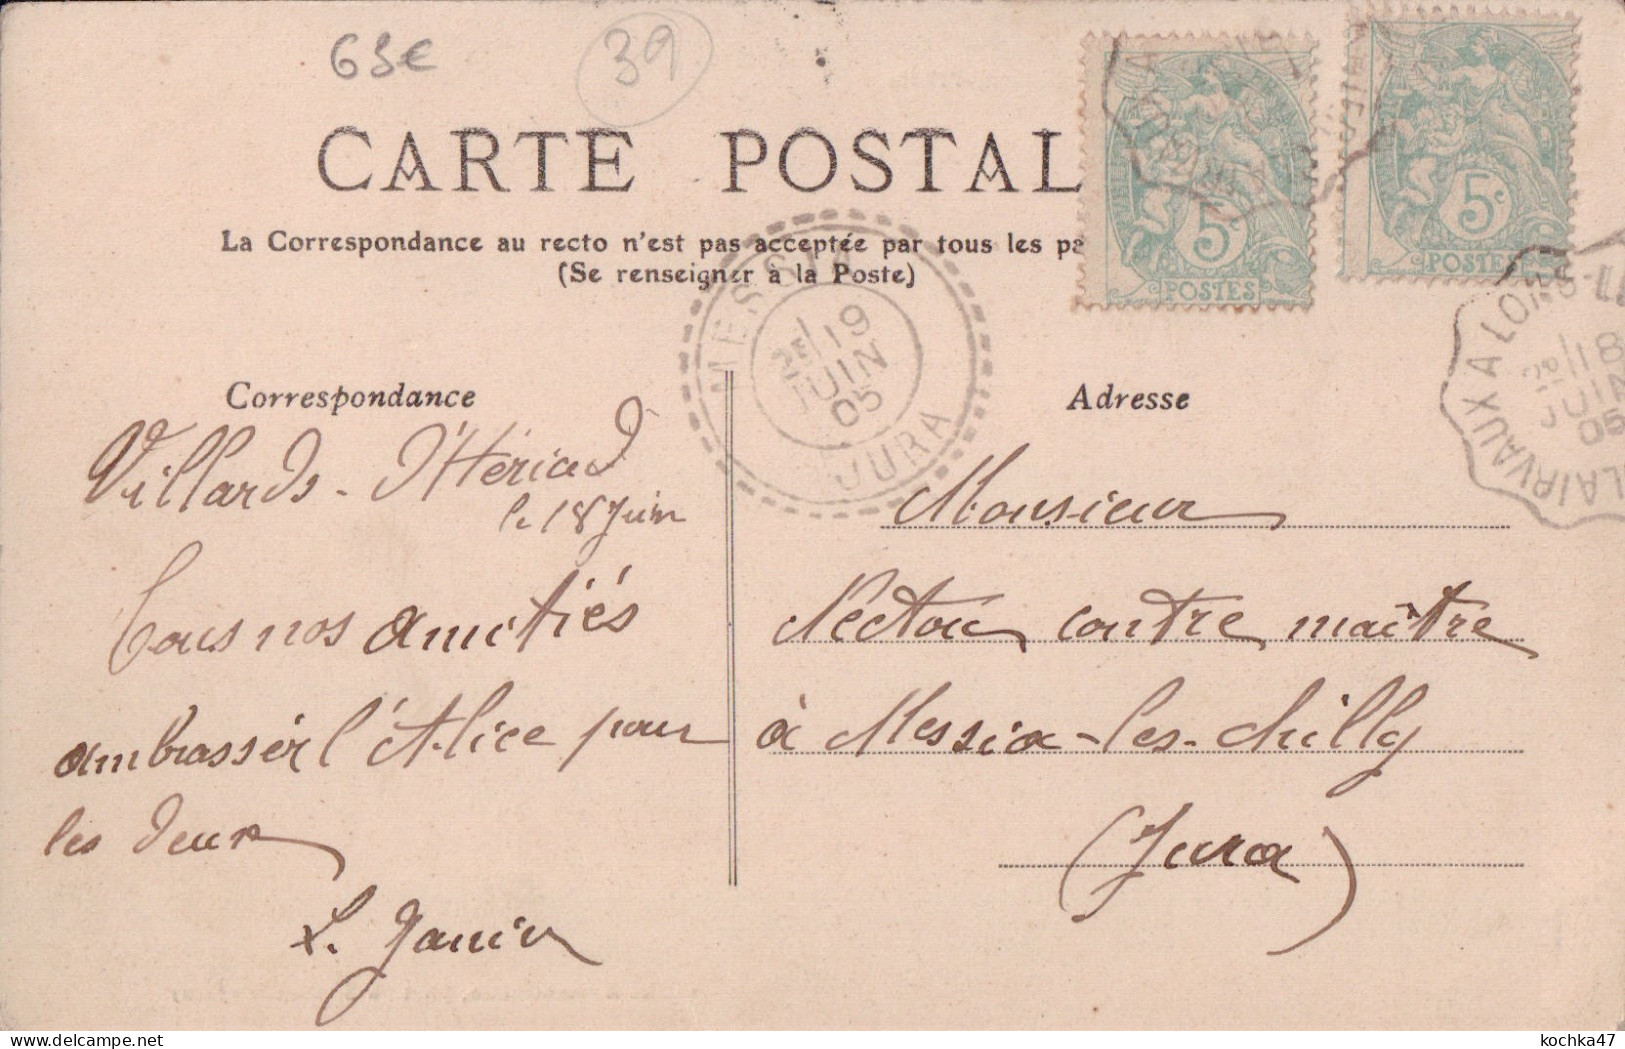 63€
39
CARTE POSTAL
La Correspondance au recto n'est pas acceptée par tous les pa
(Se renseigner à la Poste)
5c
POSTES
5c
POSTES
MESSIA
2E 19
JUIN
05
JURA
LAIRVAUX A LONS
18
JUIN
05
Correspondance
Adresse
Villards-d'Hériad
le 18 Juin
Tous nos amitiés
ambrassér l'Alice pour
les deux
L. Janin
Monsieur
contre maître
à Messia-les-chilly
(Jura)
kochka47